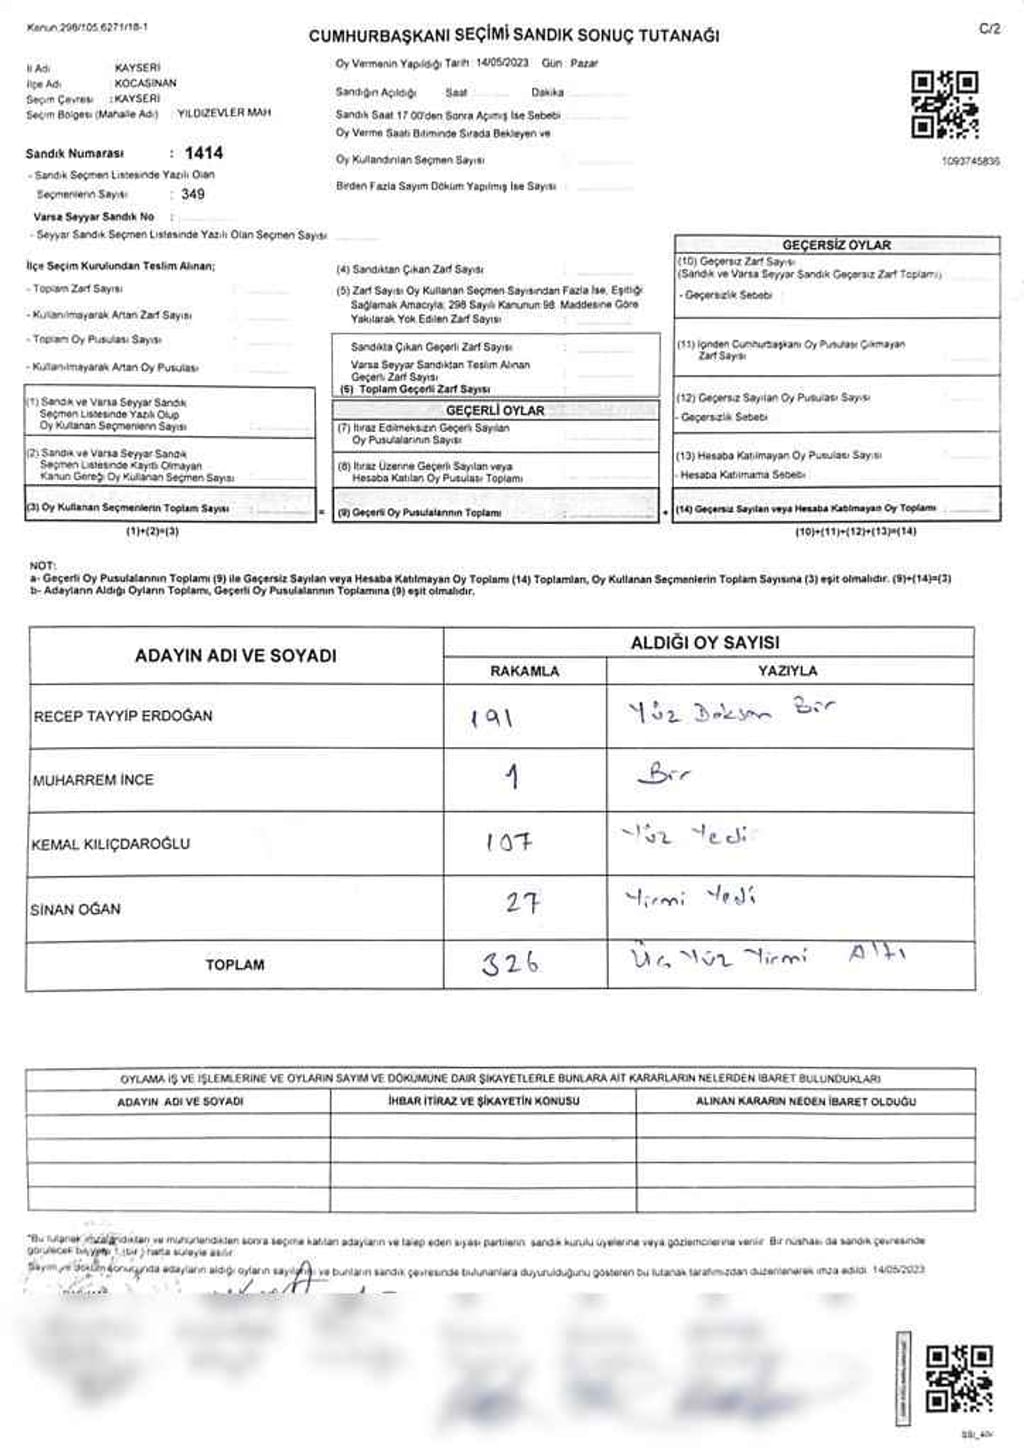 Kanun 298/105,6271/18-1
CUMHURBAŞKANI SEÇİMİ SANDIK SONUÇ TUTANAĞI
C/2
İl Adı KAYSERİ
İlçe Adı KOCASİNAN
Seçim Çevresi : KAYSERİ
Seçim Bölgesi (Mahalle Adı) YILDIZEVLER MAH
Oy Vermenin Yapıldığı Tarih : 14/05/2023 Gün : Pazar
Sandığın Açıldığı Saat Dakika
Sandık Saat 17 00'den Sonra Açımış İse Sebebi
Oy Verme Saati Bitiminde Sırada Bekleyen ve
Oy Kullandırılan Seçmen Sayısı :
Birden Fazla Sayım Döküm Yapılmış İse Sayısı :
1093745836
Sandık Numarası : 1414
- Sandık Seçmen Listesinde Yazılı Olan
Seçmenlerin Sayısı : 349
Varsa Seyyar Sandık No :
- Seyyar Sandık Seçmen Listesinde Yazılı Olan Seçmen Sayısı
İlçe Seçim Kurulundan Teslim Alınan;
- Toplam Zarf Sayısı
- Kullanılmayarak Artan Zarf Sayısı
- Toplam Oy Pusulası Sayısı
- Kullanılmayarak Artan Oy Pusulası
(1) Sandık ve Varsa Seyyar Sandık
Seçmen Listesinde Yazılı Olup
Oy Kullanan Seçmenlerin Sayısı
(2) Sandık ve Varsa Seyyar Sandık
Seçmen Listesinde Kayıtlı Olmayan
Kanun Gereği Oy Kullanan Seçmen Sayısı
(3) Oy Kullanan Seçmenlerin Toplam Sayısı :
(1)+(2)=(3)
(4) Sandıktan Çıkan Zarf Sayısı
(5) Zarf Sayısı Oy Kullanan Seçmen Sayısından Fazla İse, Eşitliği
Sağlamak Amacıyla; 298 Sayılı Kanunun 98. Maddesine Göre
Yakılarak Yok Edilen Zarf Sayısı :
Sandıkta Çıkan Geçerli Zarf Sayısı :
Varsa Seyyar Sandıktan Teslim Alınan
Geçerli Zarf Sayısı
(6) Toplam Geçerli Zarf Sayısı
GEÇERLİ OYLAR
(7) İtiraz Edilmeksizin Geçerli Sayılan
Oy Pusulalarının Sayısı
(8) İtiraz Üzerine Geçerli Sayılan veya
Hesaba Katılan Oy Pusulası Toplamı
= (9) Geçerli Oy Pusulalarının Toplamı
GEÇERSİZ OYLAR
(10) Geçersiz Zarf Sayısı
(Sandık ve Varsa Seyyar Sandık Geçersiz Zarf Toplamı)
- Geçersizlik Sebebi :
(11) İçinden Cumhurbaşkanı Oy Pusulası Çıkmayan
Zarf Sayısı
(12) Geçersiz Sayılan Oy Pusulası Sayısı
- Geçersizlik Sebebi
(13) Hesaba Katılmayan Oy Pusulası Sayısı
- Hesaba Katılmama Sebebi
+ (14) Geçersiz Sayılan veya Hesaba Katılmayan Oy Toplamı
(10)+(11)+(12)+(13)=(14)
NOT:
a- Geçerli Oy Pusulalarının Toplamı (9) ile Geçersiz Sayılan veya Hesaba Katılmayan Oy Toplamı (14) Toplamları, Oy Kullanan Seçmenlerin Toplam Sayısına (3) eşit olmalıdır. (9)+(14)=(3)
b- Adayların Aldığı Oyların Toplamı, Geçerli Oy Pusulalarının Toplamına (9) eşit olmalıdır.
ADAYIN ADI VE SOYADI ALDIĞI OY SAYISI
RAKAMLA YAZIYLA
RECEP TAYYİP ERDOĞAN 191 Yüz Doksan Bir
MUHARREM İNCE 1 Bir
KEMAL KILIÇDAROĞLU 107 Yüz Yedi
SİNAN OĞAN 27 Yirmi Yedi
TOPLAM 326 Üç Yüz Yirmi Altı
OYLAMA İŞ VE İŞLEMLERİNE VE OYLARIN SAYIM VE DÖKÜMÜNE DAİR ŞİKAYETLERLE BUNLARA AİT KARARLARIN NELERDEN İBARET BULUNDUKLARI
ADAYIN ADI VE SOYADI İHBAR İTİRAZ VE ŞİKAYETİN KONUSU ALINAN KARARIN NEDEN İBARET OLDUĞU
"Bu tutanak imzalandıktan ve mühürlendikten sonra seçime katılan adayların ve talep eden siyasi partilerin sandık kurulu üyelerine veya gözlemcilerine verilir. Bir nüshası da sandık çevresinde
görülecek bir yere 1 (bir) hafta süreyle asılır.
Sayım ve döküm sonucunda adayların aldığı oyların sayılarını ve bunların sandık çevresinde bulunanlara duyurulduğunu gösteren bu tutanak tarafımızdan düzenlenerek imza edildi. 14/05/2023